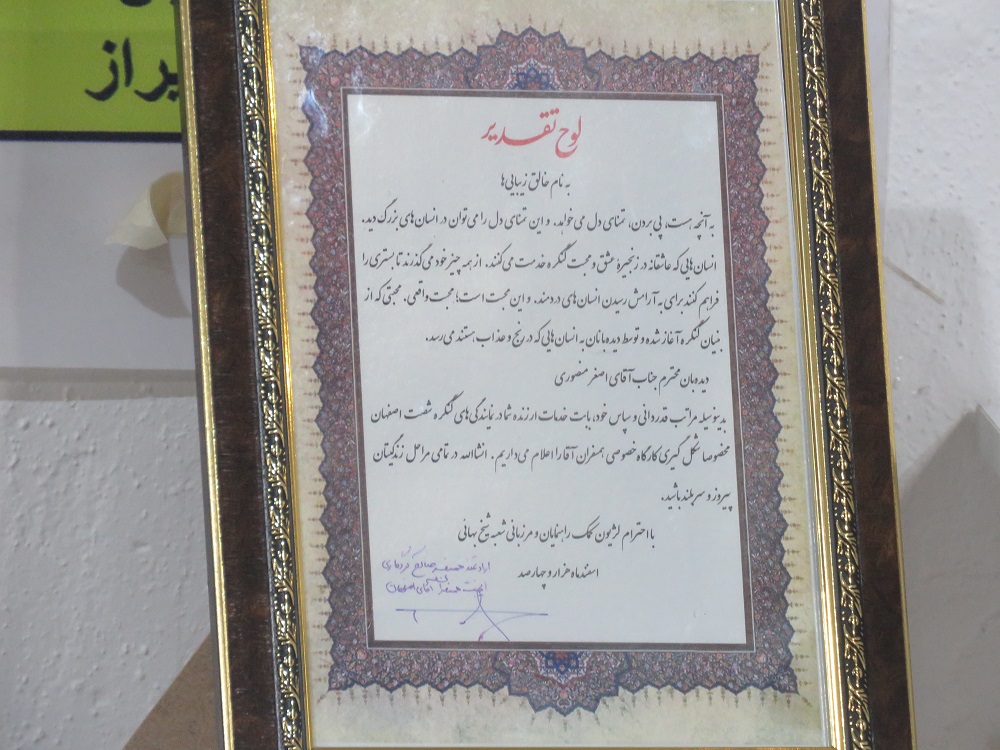 یر از
لوح تقدیر
به نام خالق زیبایی‌ها
به آنچه هست، پی بردن، تمنای دل می خواهد. و این تمنای دل را می توان در انسان های بزرگ دید.
انسان هایی که عاشقانه در زنجیره عشق و محبت کنگره خدمت می کنند. از همه چیز خود می گذرند تا بستری را
فراهم کنند برای به آرامش رسیدن انسان های دردمند. و این محبت است؛ محبت واقعی. محبتی که از
بنیان کنگره آغاز شده و توسط دیده بانان به انسان هایی که در رنج و عذاب هستند می رسد.
دیده بان محترم جناب آقای اصغر منصوری
بدینوسیله مراتب قدردانی و سپاس خود، بابت خدمات ارزنده شما در نمایندگی های کنگره شصت اصفهان
مخصوصا شکل گیری کارگاه خصوصی همسفران آقا را اعلام می داریم. انشاالله در تمامی مراحل زندگیتان
پیروز و سربلند باشید.
با احترام لژیون کمک راهنمایان و مرزبانی شعبه شیخ بهائی
اسفند ماه هزار و چهارصد